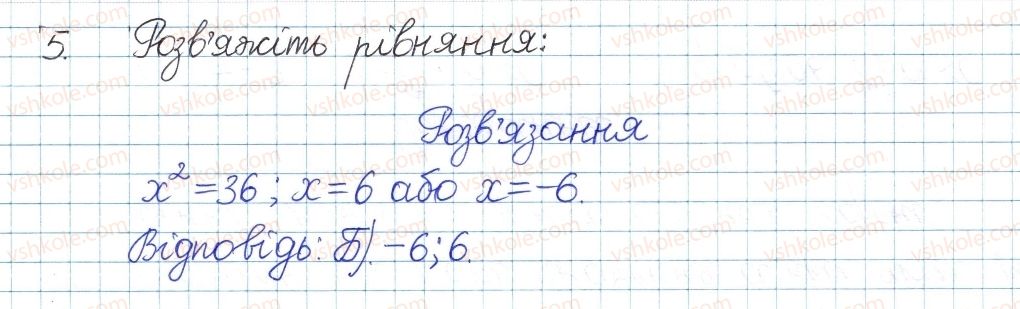 5. Розв'яжіть рівняння:
Розв'язання
x² = 36; x = 6 або x = -6.
Відповідь: Б). -6; 6.